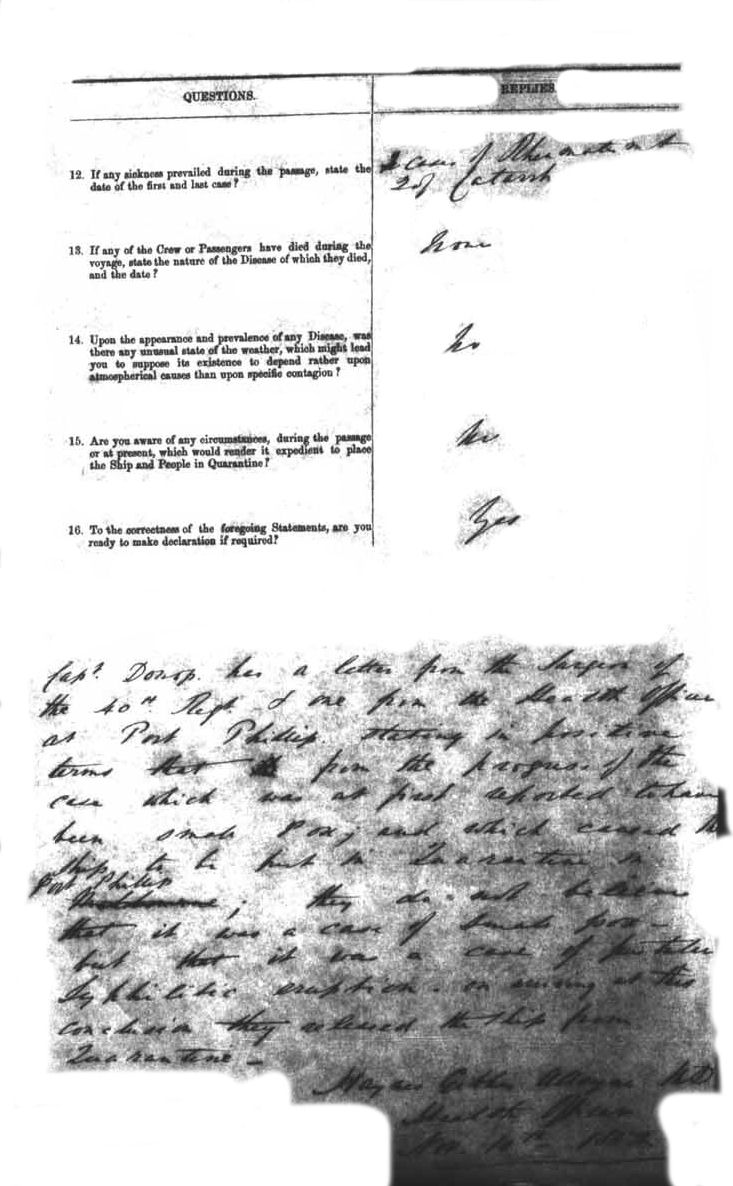 QUESTIONS.
REPLIES.
12. If any sickness prevailed during the passage, state the
date of the first and last case?
cases of Rheumatism &
2 of Catarrh
13. If any of the Crew or Passengers have died during the
voyage, state the nature of the Disease of which they died,
and the date?
None
14. Upon the appearance and prevalence of any Disease, was
there any unusual state of the weather, which might lead
you to suppose its existence to depend rather upon
atmospherical causes than upon specific contagion?
No
15. Are you aware of any circumstances, during the passage
or at present, which would render it expedient to place
the Ship and People in Quarantine?
No
16. To the correctness of the foregoing Statements, are you
ready to make declaration if required?
Yes
Capt. Donop. has a letter from the Surgeon of
the 40th Regt. & one from the Health Officer
at Port Phillip. stating in positive
terms that from the progress of the
case which was at first reported to have
been small Pox, and which caused the
ship to be put in Quarantine in
Port Phillip
Melbourne; they do not believe
that it was a case of small pox -
but that it was a case of
Syphilitic eruption. on arriving at this
conclusion they released the ship from
Quarantine -
Haynes Gibbes Alleyne MD
Health Officer
Nov.